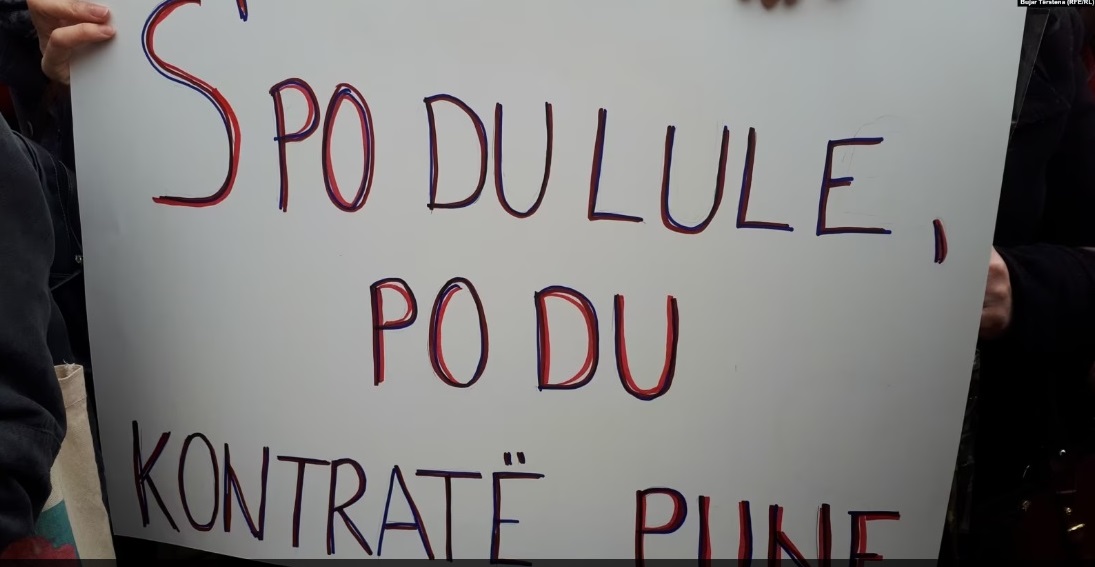 Bujar Tërstena (RFE/RL)
S'PO DU LULE,
PO DU
KONTRATË PUNE